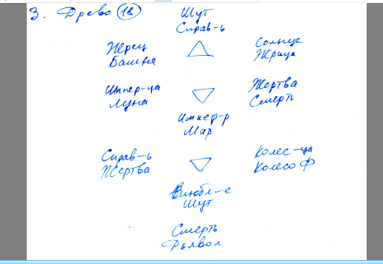 3. Древо (18)
Шут
Справ-ь
Жрец
Башня
Солнце
Жрица
Импер-ца
Луна
Жертва
Смерть
Импер-р
Мир
Справ-ь
Жертва
Колес-ца
Колесо Ф
Влюбл-е
Шут
Смерть
Дьявол